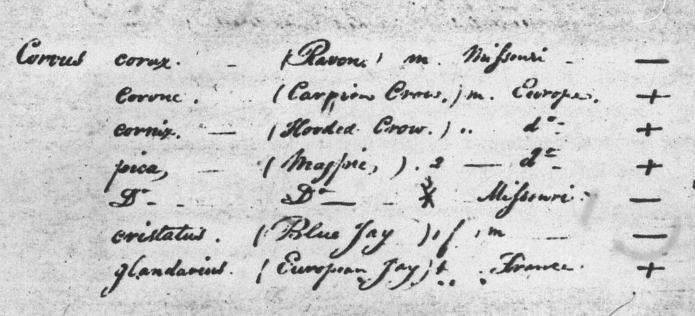 Corvus corax. (Raven) m. Missouri —
Corone. (Carrion Crow.) m. Europe. +
cornix. — (Hooded Crow.) .. do +
pica, (Magpie,) . 2 — do +
Do Do — Missouri —
cristatus. (Blue Jay) , f , m —
glandarius. (European Jay) France. +